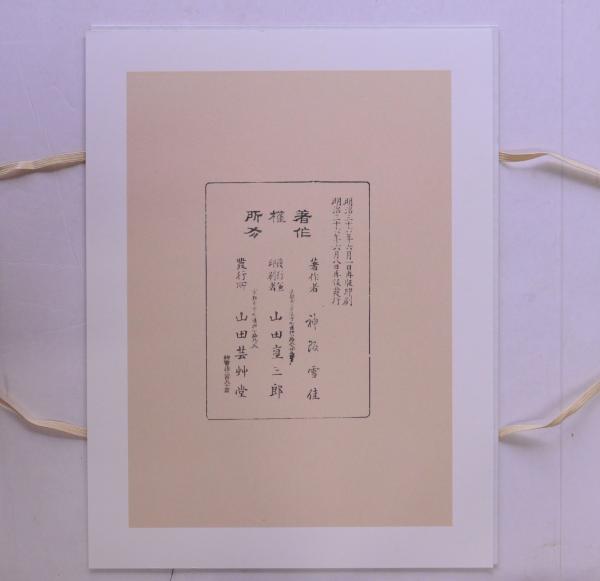 明治三十六年六月一日再版印刷
明治三十六年六月八日再版發行
著作
權
所有
著作者
神阪雪佳
發行兼
印刷者
山田直三郎
發行所
山田芸艸堂